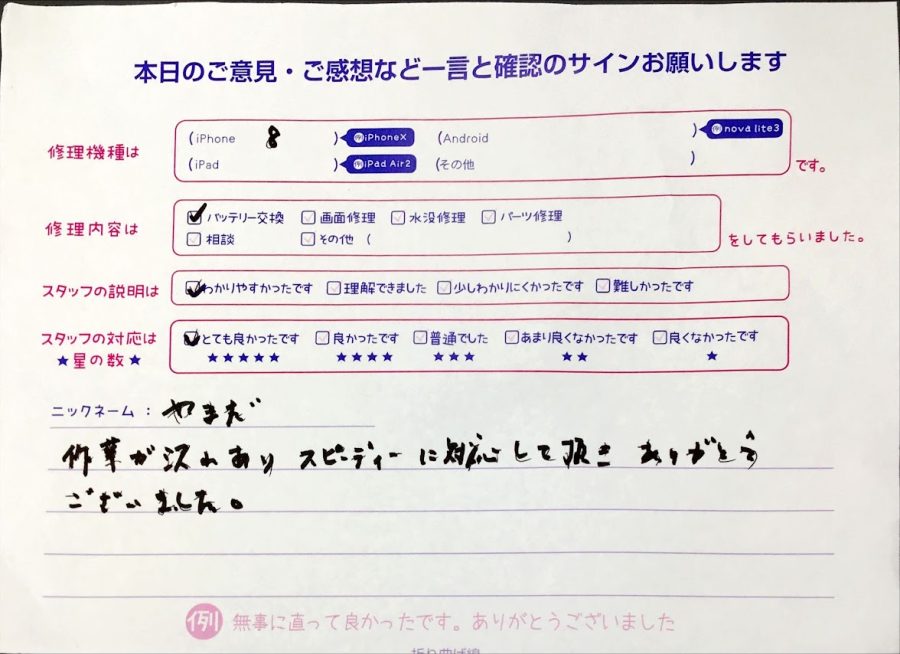 本日のご意見・ご感想など一言と確認のサインお願いします
修理機種は
(iPhone 8 ) 例iPhoneX (Android ) 例nova lite3
(iPad ) 例iPad Air2 (その他 ) です。
修理内容は
バッテリー交換 画面修理 水没修理 パーツ修理
相談 その他 ( ) をしてもらいました。
スタッフの説明は わかりやすかったです 理解できました 少しわかりにくかったです 難しかったです
スタッフの対応は とても良かったです 良かったです 普通でした あまり良くなかったです 良くなかったです
★星の数★ ★★★★★ ★★★★ ★★★ ★★ ★
ニックネーム： やまだ
作業が 流れあり スピーディーに対応して頂き ありがとう
ございました。
例 無事に直って良かったです。ありがとうございました
折り曲げ線